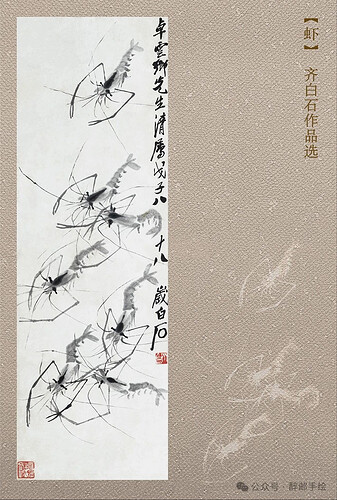 【虾】 齐白石作品选
卓云乡先生清属戊子八十八岁白石
公众号 · 醉邮手绘